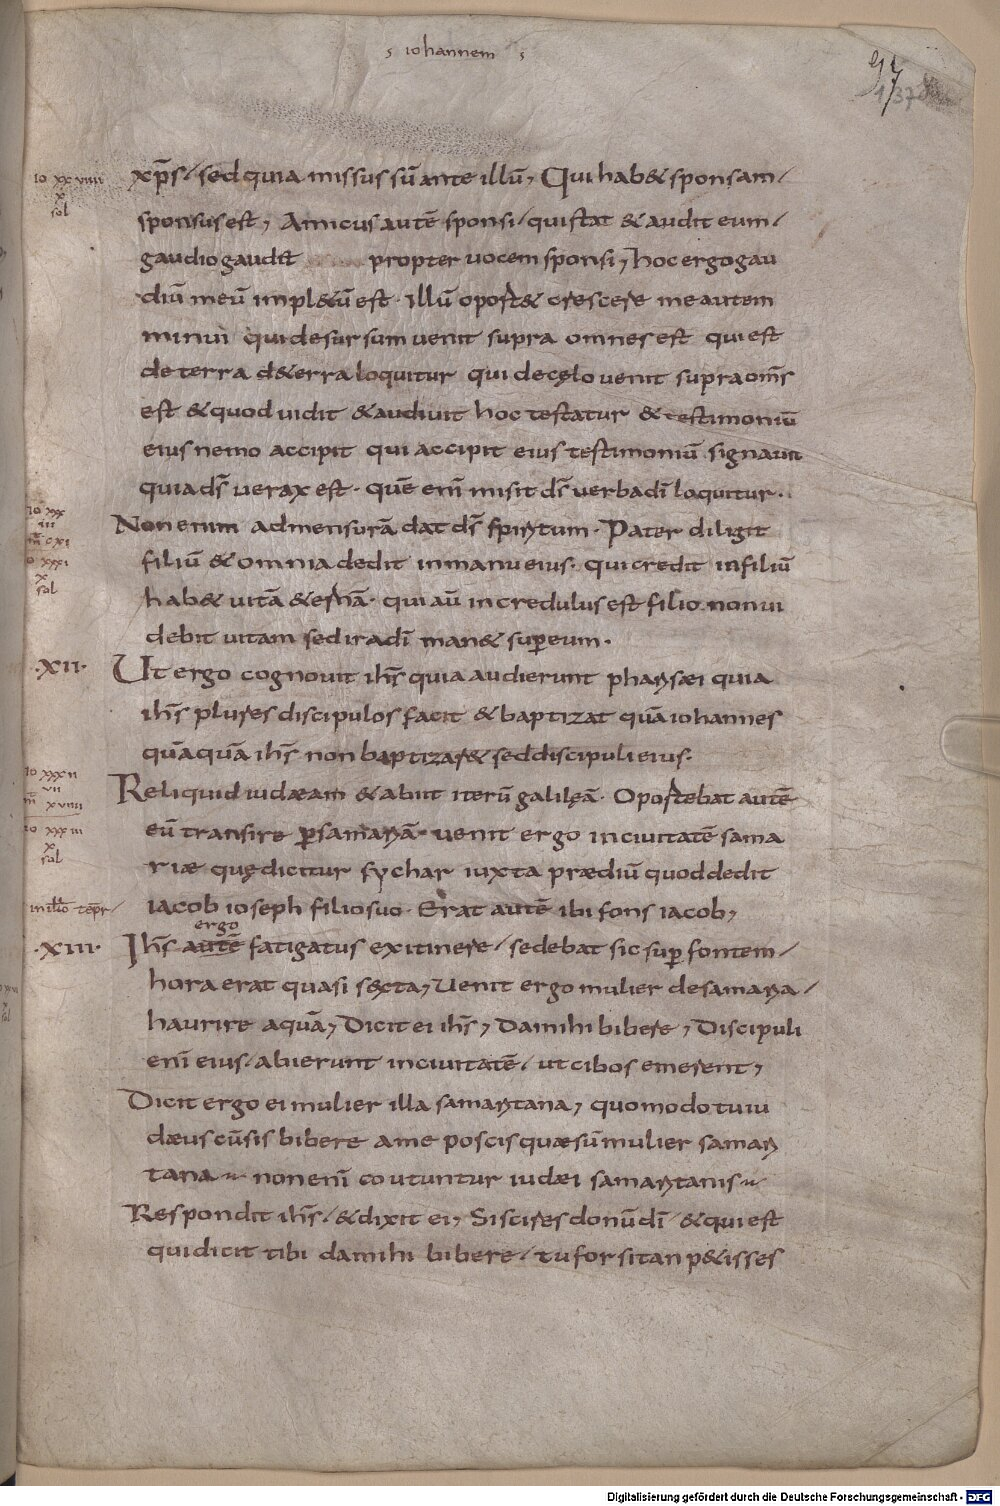 s iohannem s
97
137
io xxviiii
x
sol
xp̄s / sed quia missus sū ante illū, Qui hab& sponsam /
sponsus est, Amicus autē sponsi / qui stat & audit eum /
gaudio gaud& propter vocem sponsi, hoc ergo gau
diū meū impl&ū est · illū oport& crescere me autem
minui qui desursum venit supra omnes est qui est
de terra d&erra loquitur qui de cęlo venit supra om̄s
est & quod vidit & audivit hoc testatur & testimoniū
eius nemo accipit qui accipit eius testimoniū signavit
quia d̄s verax est · quē enī misit d̄s verba dī loquitur ·
io xxx
iii
m̄ cxi
io xxxi
x
sol
Non enim ad mensurā dat d̄s spiritum · Pater diligit
filiū & omnia dedit in manu eius · qui credit in filiū
hab& vitā &ernā · qui aū incredulus est filio non vi
debit vitam sed ira dī man& super eum ·
·XII· Ut ergo cognovit ih̄s quia audierunt pharisæi quia
ih̄s plures discipulos facit & baptizat quā iohannes
quāquā ih̄s non baptizar& sed discipuli eius ·
io xxxii
vii
m̄ xviiii
io xxxiii
x
sol
Reliquid iudæam & abiit iterū galilęā · Oportebat autē
eū transire ꝑ samariā · venit ergo in civitatē sama
riæ quę dicitur sychar iuxta prædiū quod dedit
iacob ioseph filio suo · Erat autē ibi fons iacob,
ergo
·XIII· Ih̄s autē fatigatus ex itinere / sedebat sic suꝑ fontem /
hora erat quasi sexta, Venit ergo mulier de samaria /
haurire aquā, Dicit ei ih̄s, Da mihi bibere, Discipuli
enī eius / abierunt in civitatē / ut cibos emerent,
Dicit ergo ei mulier illa samaritana, quomodo tu iu
dæus cū sis bibere a me poscis quæ sū mulier samari
tana ~ non enī coutuntur iudæi samaritanis ~
Respondit ih̄s / & dixit ei, Si scires donū dī / & qui est
qui dicit tibi da mihi bibere / tu forsitan p&isses
Digitalisierung gefördert durch die Deutsche Forschungsgemeinschaft - DFG